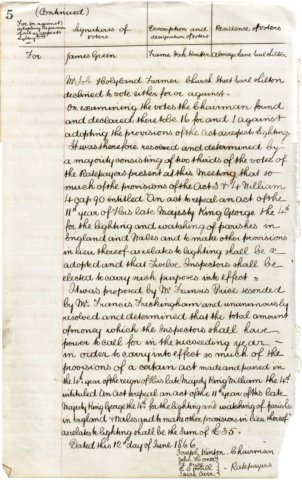 5 (Continued)
For (or against)
Signatures of Voters
Description and designation of Voters
Residence of Voters
For
James Green
Frame Work Knitter
Almeys Lane Earl Shilton
Mr Job Holyland Farmer Church Street Earl Shilton
declined to vote either for or against.
On examining the votes the Chairman found
and declared there to be 16 for and 1 against
adopting the provisions of the Act as respects lighting
It was therefore resolved and determined by
a majority consisting of two thirds of the votes of
the Ratepayers present at this Meeting that so
much of the provisions of the Act 3 & 4 William
4 cap 90 intitled "An act to repeal an act of the
11th year of His late Majesty King George the 4th
for the lighting and watching of parishes in
England and Wales and to make other provisions
in lieu thereof as relates to lighting shall be
adopted and that Twelve Inspectors shall be
elected to carry such purposes into effect
It was proposed by Mr Francis Price seconded
by Mr Francis Freckingham and unanimously
resolved and determined that the total amount
of money which the Inspectors shall have
power to call for in the succeeding year
in order to carry into effect so much of the
provisions of a certain act made and passed in
the 4th year of the reign of His late Majesty King William the 4th
intituled An Act to repeal an act of the 11th year of His late
Majesty King George the 4th for the lighting and watching of parishes
in England & Wales and to make other provisions in lieu thereof
as relates to lighting shall be the Sum of £35.
Dated this 12th day of June 1866
Joseph Hinton Chairman
Ratepayers